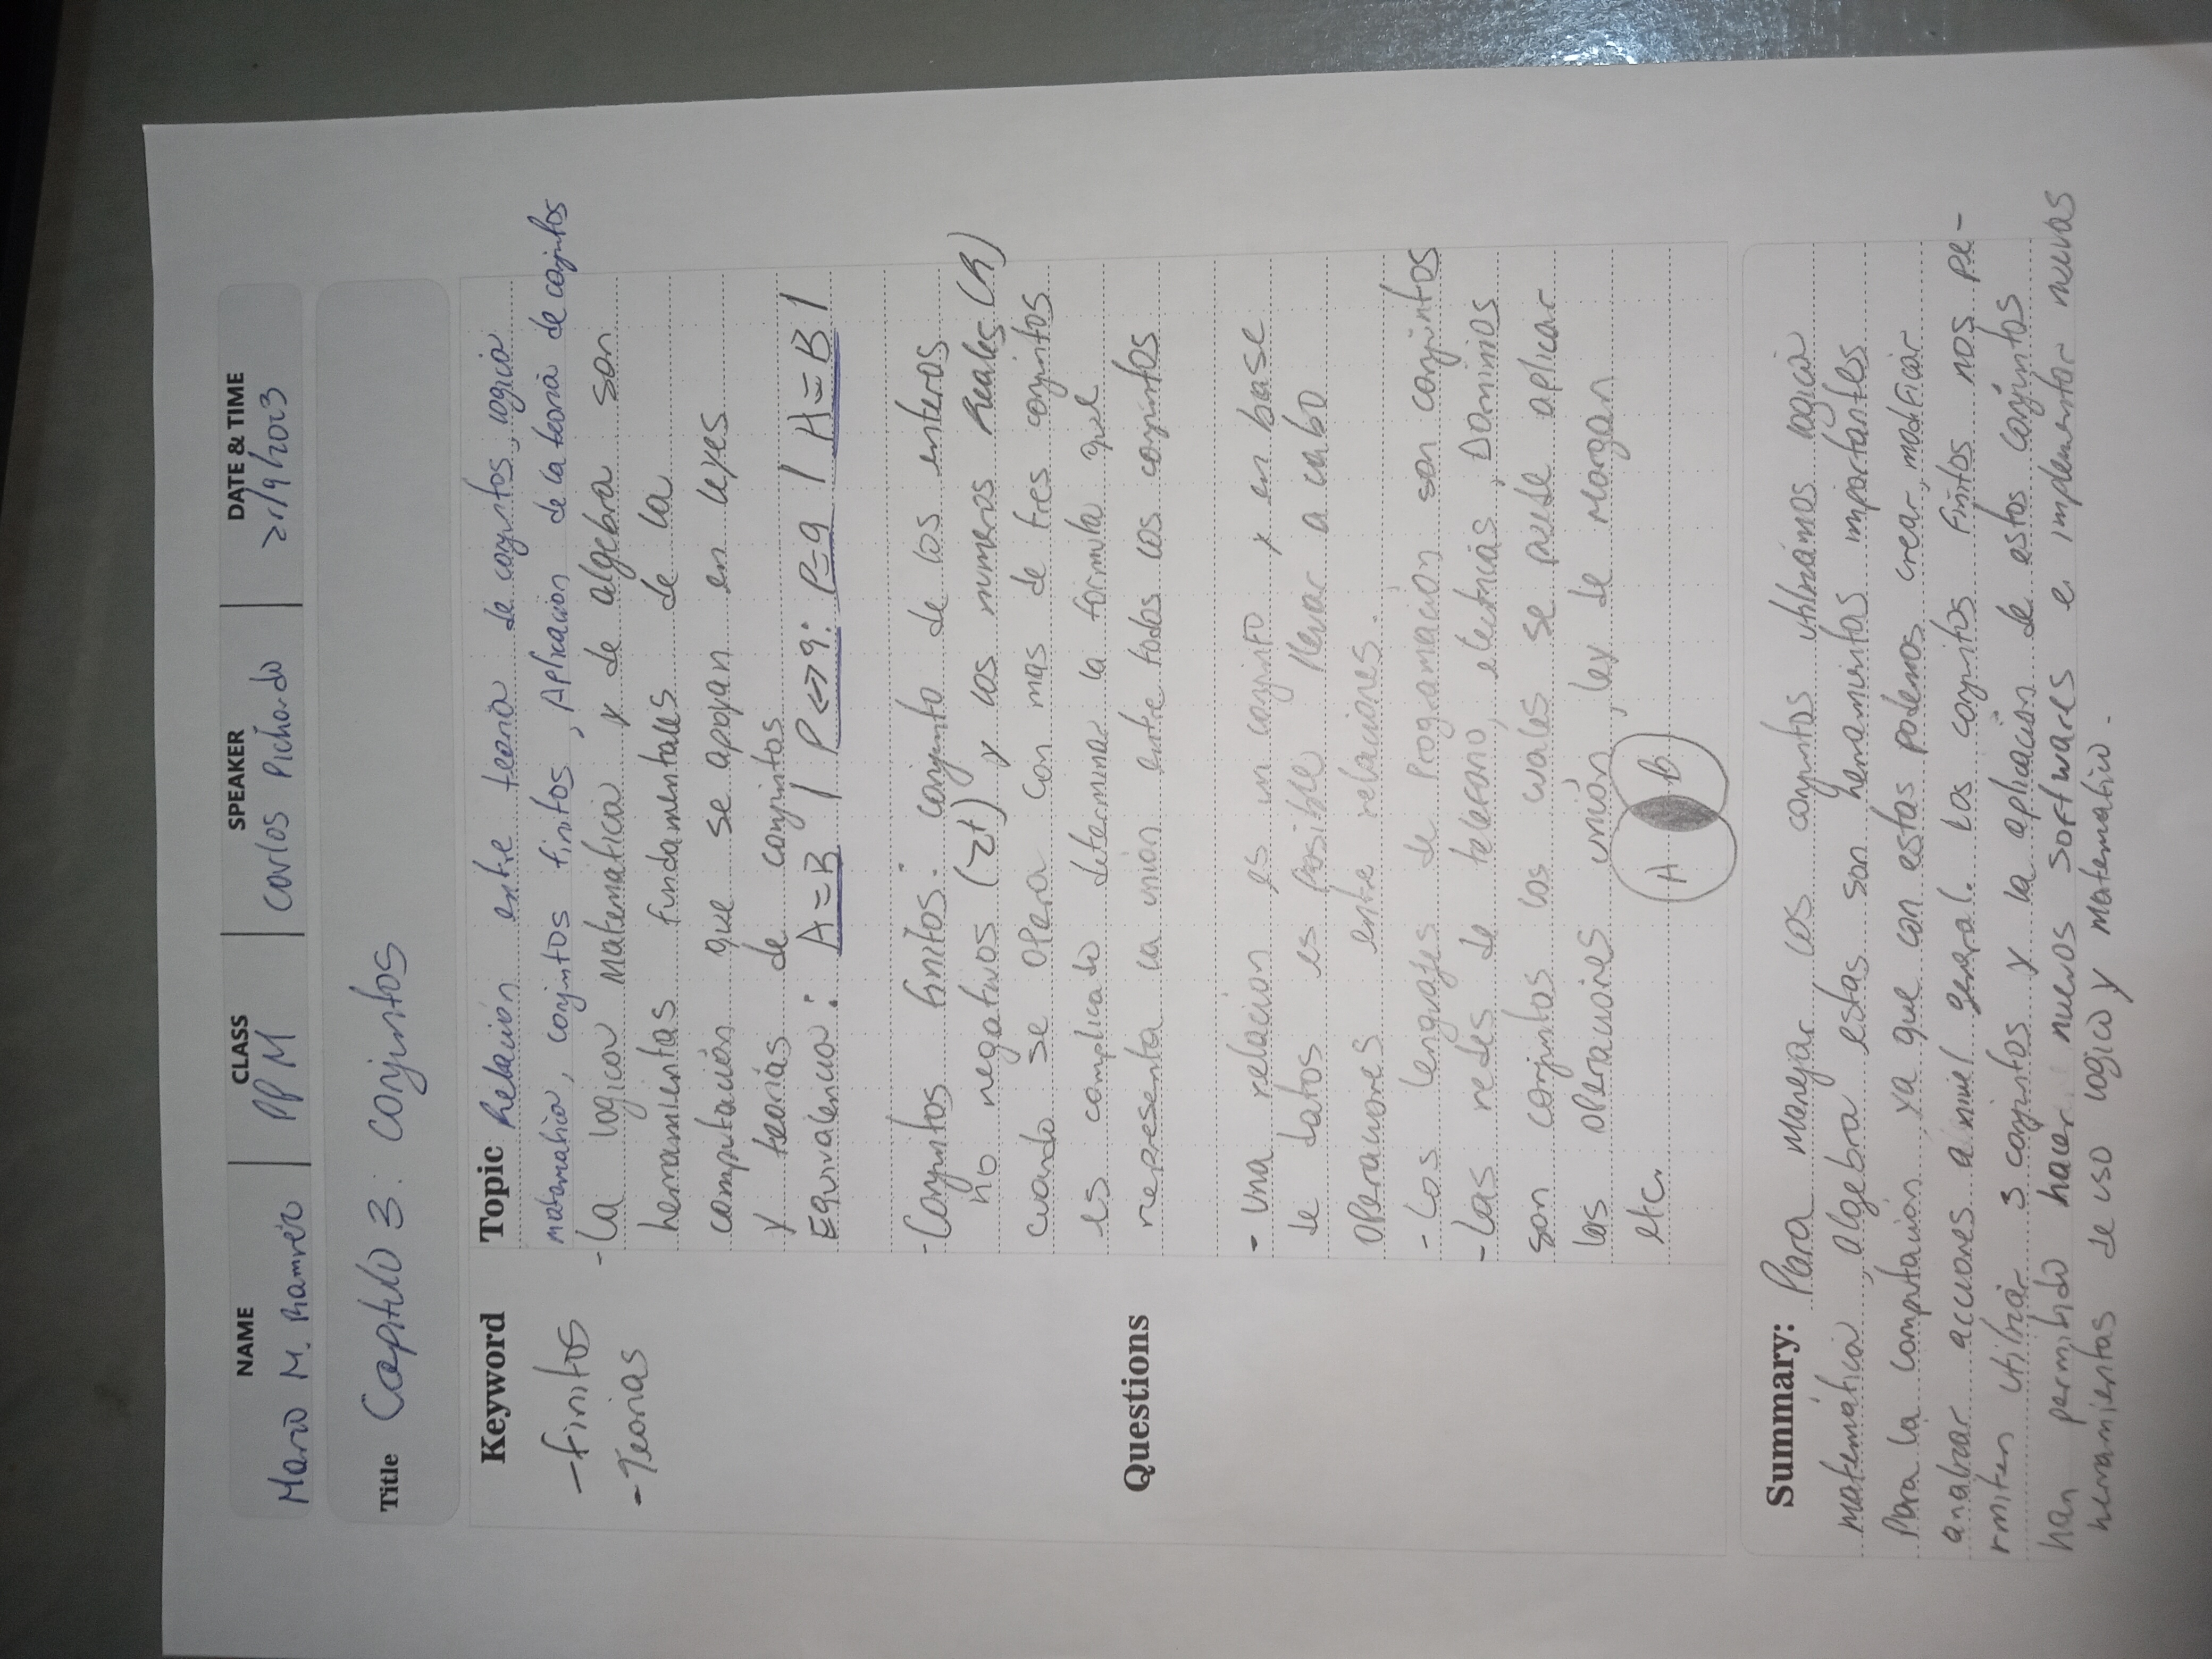 NAME CLASS SPEAKER DATE & TIME
Mario M. Ramírez PPM Carlos Pichardo 21/9/2023
Title Capitulo 3: conjuntos
Keyword
-finitos
-Teorias
Topic Relación entre teoria de conjuntos, logica
matematica, conjuntos finitos, Aplicacion de la teoria de conjuntos
-La logica Matematica y de algebra son
herramientas fundamentales de la
computación que se apoyan en leyes
y teorías de conjuntos
Equivalencia: A=B | P<->q: p=q | A=B |
-Conjuntos finitos: conjunto de los enteros
no negativos (Z+) y los numeros Reales (R)
cuando se opera con mas de tres conjuntos
es complicado determinar la formula que
representa la unión entre todos los conjuntos
Questions
- Una relacion es un conjunto y en base
de datos es posible llevar a cabo
operaciones entre relaciones.
-Los lenguajes de Programación son conjuntos
-Las redes de telefono, electricas, Dominios
son conjuntos los cuales se puede aplicar
las operaciones unión, ley de Morgan
etc.
A B
Summary: Para Manejar los conjuntos utilizamos logica
matemática, algebra estas son herramientas importantes
Para la computación, ya que con estas podemos crear, modificar
analizar acciones a nivel general. Los conjuntos finitos nos pe-
rmiten utilizar 3 conjuntos y la aplicación de estos conjuntos
han permitido hacer nuevos softwares e implementar nuevas
herramientas de uso logico y Matematico.